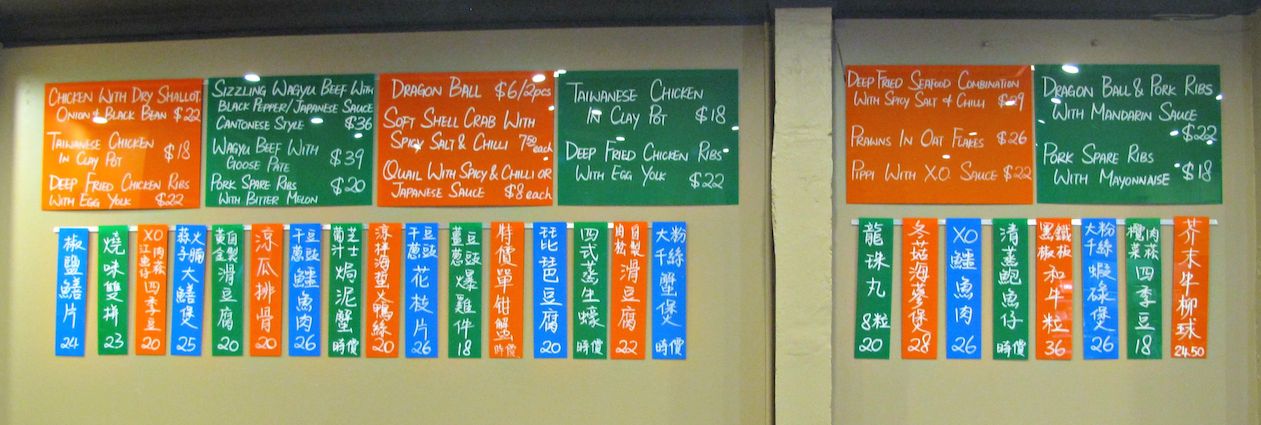 CHICKEN WITH DRY SHALLOT,
ONION & BLACK BEAN $22
TAIWANESE CHICKEN
IN CLAY POT $18
DEEP FRIED CHICKEN RIBS
WITH EGG YOLK $22
SIZZLING WAGYU BEEF WITH
BLACK PEPPER/JAPANESE SAUCE
CANTONESE STYLE $36
WAGYU BEEF WITH
GOOSE PATE $39
PORK SPARE RIBS
WITH BITTER MELON $20
DRAGON BALL $6/2pcs
SOFT SHELL CRAB WITH
SPICY SALT & CHILLI 7.80 each
QUAIL WITH SPICY & CHILLI OR
JAPANESE SAUCE $8 each
TAIWANESE CHICKEN
IN CLAY POT $18
DEEP FRIED CHICKEN RIBS
WITH EGG YOLK $22
DEEP FRIED SEAFOOD COMBINATION
WITH SPICY SALT & CHILLI $29
PRAWNS IN OAT FLAKES $26
PIPPI WITH X.O. SAUCE $22
DRAGON BALL & PORK RIBS
WITH MANDARIN SAUCE
$22
PORK SPARE RIBS
WITH MAYONNAISE $18
椒鹽鱔片 24
燒味雙拼 23
XO江魚仔肉菘四季豆 20
蒜子火腩大鱔煲 25
黃金自製滑豆腐 20
涼瓜排骨 20
干蔥豆豉鱷魚肉 26
葡汁芝士焗泥蟹 時價
涼拌海蜇火鴨絲 20
干蔥豆豉花枝片 26
薑蔥豆豉爆雞件 18
特價單钳蟹 時價
琵琶豆腐 20
四式蒸生蠔 時價
肉松自製滑豆腐 22
大千粉絲蟹煲 時價
龍珠丸 8粒 20
冬菇海參煲 28
XO鱷魚肉 26
清蒸鮑魚仔 時價
黑椒鐵板和牛粒 36
大千粉絲蝦碌煲 26
欖菜肉菘四季豆 18
芥末牛柳球 24.50